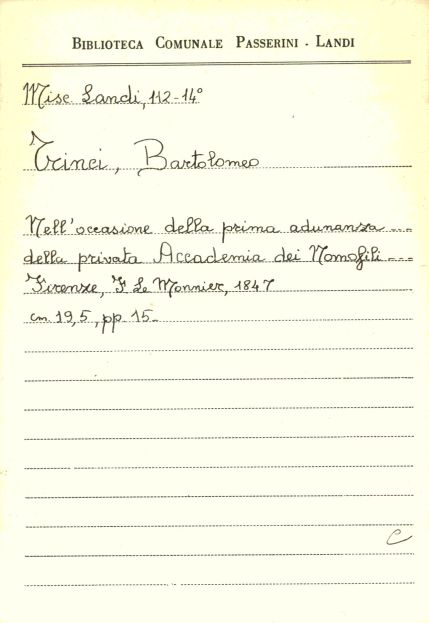 BIBLIOTECA COMUNALE PASSERINI - LANDI
Misc Landi, 112-14°
Trinci, Bartolomeo
Nell'occasione della prima adunanza ...
della privata Accademia dei Nomofili ...
Firenze, F Le Monnier, 1847
cm. 19,5, pp 15.
C